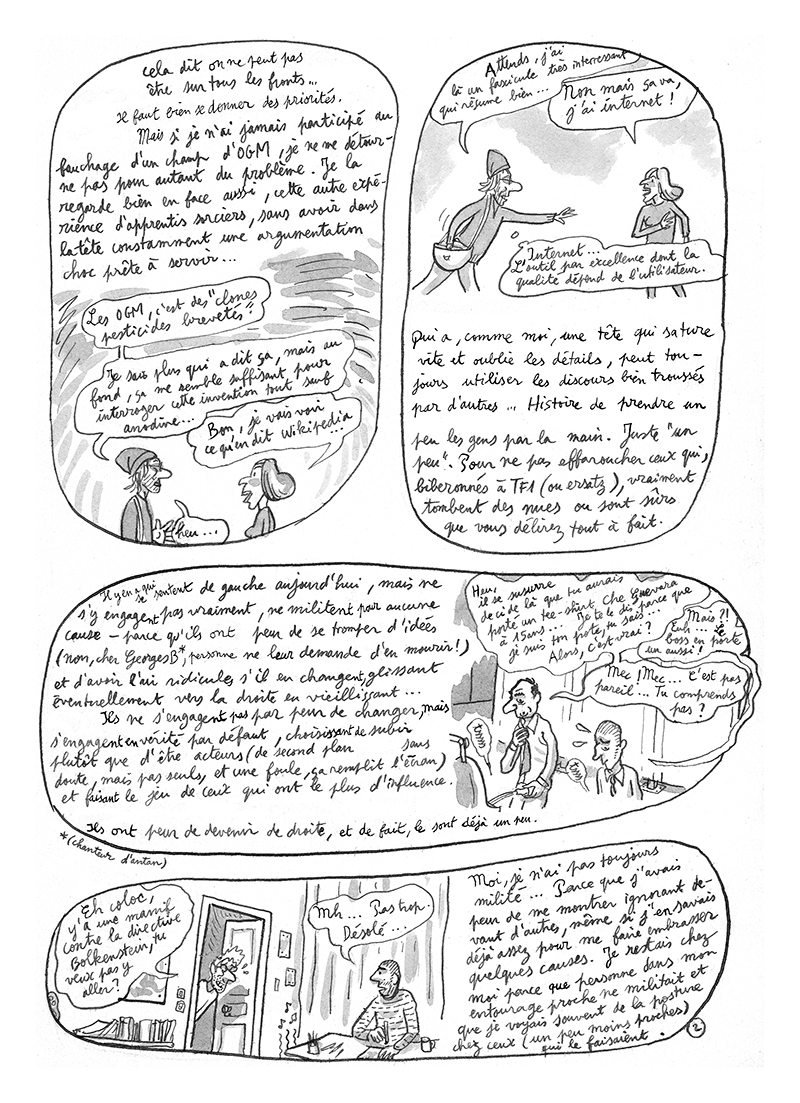 cela dit on ne peut pas
être sur tous les fronts...
Il faut bien se donner des priorités.
Mais si je n'ai jamais participé au
fauchage d'un champ d'OGM, je ne me détour-
ne pas pour autant du problème. Je la
regarde bien en face aussi, cette autre expé-
rience d'apprentis sorciers, sans avoir dans
la tête constamment une argumentation
choc prête à servir...
Les OGM, c'est des "clones
pesticides brevetés".
Je sais plus qui a dit ça, mais au
fond, ça me semble suffisant pour
interroger cette invention tout sauf
anodine...
Bon, je vais voir
ce qu'en dit Wikipedia
heu...
Attends, j'ai
là un fascicule très interressant
qui résume bien...
Non mais ça va,
j'ai internet !
Internet...
L'outil par excellence dont la
qualité dépend de l'utilisateur.
Qui a, comme moi, une tête qui sature
vite et oublie les détails, peut tou-
jours utiliser les discours bien troussés
par d'autres... Histoire de prendre un
peu les gens par la main. Juste "un
peu". Pour ne pas effaroucher ceux qui,
biberonnés à TF1 (ou ersatz), vraiment
tombent des nues ou sont sûrs
que vous délirez tout à fait.
Il y en a qui
se sentent de gauche aujourd'hui, mais ne
s'y engagent pas vraiment, ne militent pour aucune
cause - parce qu'ils ont peur de se tromper d'idées
(non, cher Georges B*, personne ne leur demande d'en mourir !)
et d'avoir l'air ridicules s'il en changent, glissant
éventuellement vers la droite en vieillissant...
Ils ne s'engagent pas par peur de changer, mais
s'engagent en vérité par défaut, choisissant de subir
plutôt que d'être acteurs (de second plan sans
doute, mais pas seuls, et une foule, ça remplit l'écran)
et faisant le jeu de ceux qui ont le plus d'influence.
Ils ont peur de devenir de droite, et de fait, le sont déjà un peu.
Heu,
il se susurre
de ci de là que tu aurais
porté un tee-shirt Che Guevara
à 15 ans... Je te le dis parce que
je suis ton pote, tu sais...
Alors, c'est vrai ?
Mais ?!
Euh... Le
boss en porte
un aussi !
Mec ! Mec... C'est pas
pareil... Tu comprends
pas ?
*(chanteur d'antan)
Eh coloc,
y'a une manif
contre la directive
Bolkenstein, tu
veux pas y
aller ?
Mh... Pas trop.
Désolé...
Moi, je n'ai pas toujours
milité... Parce que j'avais
peur de me montrer ignorant de-
vant d'autres, même si j'en savais
déjà assez pour me faire embrasser
quelques causes. Je restais chez
moi parce que personne dans mon
entourage proche ne militait et
que je voyais souvent de la posture
chez ceux (un peu moins proches)
qui le faisaient.
2